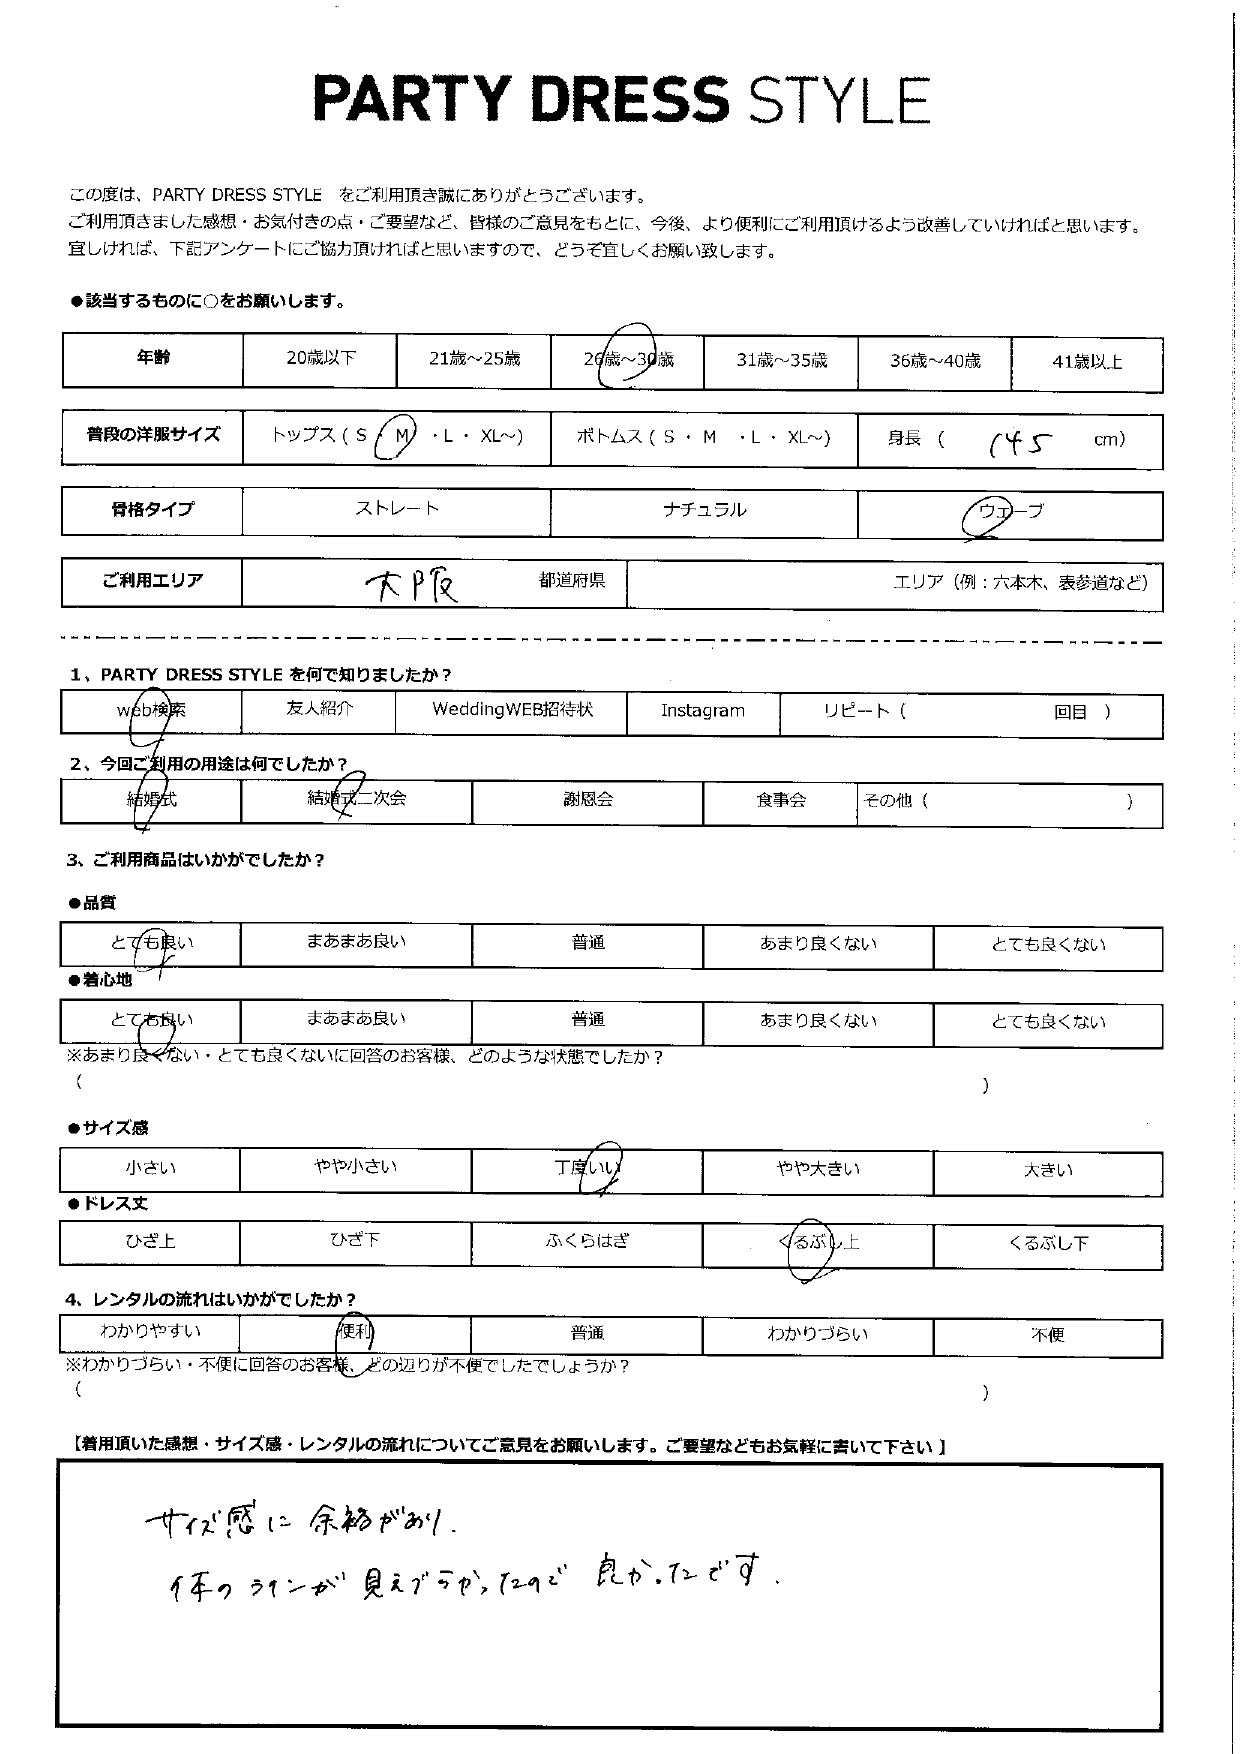 PARTY DRESS STYLE
この度は、PARTY DRESS STYLE をご利用頂き誠にありがとうございます。
ご利用頂きました感想・お気付きの点・ご要望など、皆様のご意見をもとに、今後、より便利にご利用頂けるよう改善していければと思います。
宜しければ、下記アンケートにご協力頂ければと思いますので、どうぞ宜しくお願い致します。
●該当するものに○をお願いします。
年齢 20歳以下 21歳～25歳 26歳～30歳 31歳～35歳 36歳～40歳 41歳以上
普段の洋服サイズ トップス ( S ・ M ・L ・ XL～) ボトムス ( S ・ M ・L ・ XL～) 身長 ( 145 cm)
骨格タイプ ストレート ナチュラル ウェーブ
ご利用エリア 大阪 都道府県 エリア（例：六本木、表参道など）
1、PARTY DRESS STYLE を何で知りましたか？
web検索 友人紹介 WeddingWEB招待状 Instagram リピート ( 回目 )
2、今回ご利用の用途は何でしたか？
結婚式 結婚式二次会 謝恩会 食事会 その他 ( )
3、ご利用商品はいかがでしたか？
●品質
とても良い まあまあ良い 普通 あまり良くない とても良くない
●着心地
とても良い まあまあ良い 普通 あまり良くない とても良くない
※あまり良くない・とても良くないに回答のお客様、どのような状態でしたか？
( )
●サイズ感
小さい やや小さい 丁度いい やや大きい 大きい
●ドレス丈
ひざ上 ひざ下 ふくらはぎ くるぶし上 くるぶし下
4、レンタルの流れはいかがでしたか？
わかりやすい 便利 普通 わかりづらい 不便
※わかりづらい・不便に回答のお客様、どの辺りが不便でしたでしょうか？
( )
【着用頂いた感想・サイズ感・レンタルの流れについてご意見をお願いします。ご要望などもお気軽に書いて下さい】
サイズ感に余裕があり.
体のラインが見えづらかったので良かったです.